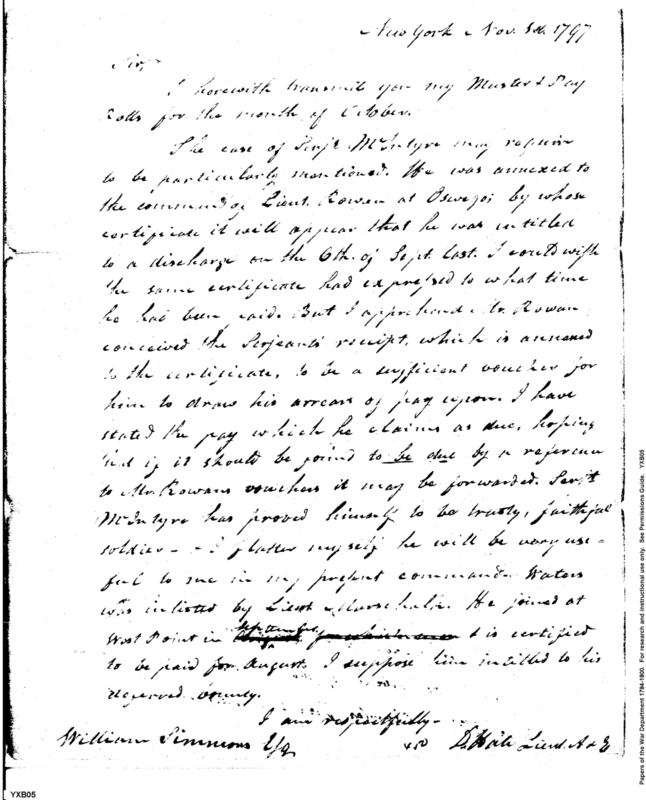 New York Nov. 3d. 1797
Sir,
I herewith transmit you my Muster & Pay
Rolls for the month of October.
The case of Serjt McIntyre may require
to be particularly mentioned. He was annexed to
the command of Lieut. Rowan at Oswego; by whose
certificate it will appear that he was intitled
to a discharge on the 6th. of Sept. last. I could wish
the same certificate had expressed to what time
he had been paid. But I apprehend Mr. Rowan
conceived the Serjeants receipt, which is annexed
to the certificate, to be a sufficient voucher for
him to draw his arrears of pay upon. I have
stated the pay which he claims as due, hoping
that if it should be found to be due by a reference
to Mr. Rowans vouchers it may be forwarded. Serjt
McIntyre has proved himself to be trusty, faithful
soldier - - I flatter myself he will be very use-
ful to me in my present command. Waters
was inlisted by Lieut Marschalk. He joined at
West Point in september & is certified
to be paid for August. I suppose him intitled to his
deserved bounty.
I am respectfully -
William Simmons Esq D. Hale Lieut. A & E
YXB05
Papers of the War Department 1784-1800. For research and instructional use only. See Permissions Guide. YXB05